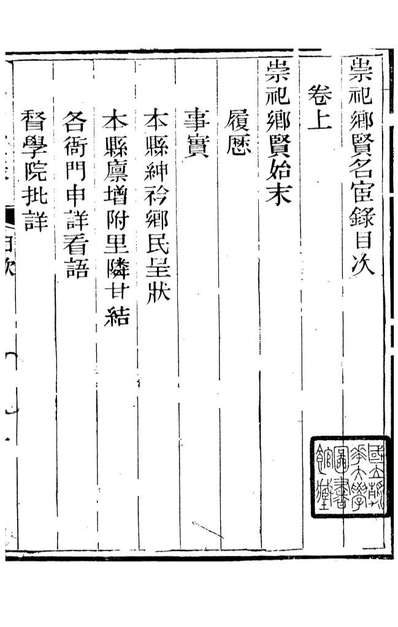 崇祀鄉賢名宦錄目次
卷上
崇祀鄉賢始末
履歷
事實
本縣紳衿鄉民呈狀
本縣廪增附里隣甘結
各衙門申詳看語
督學院批詳
目次
國立清華大學圖書館藏